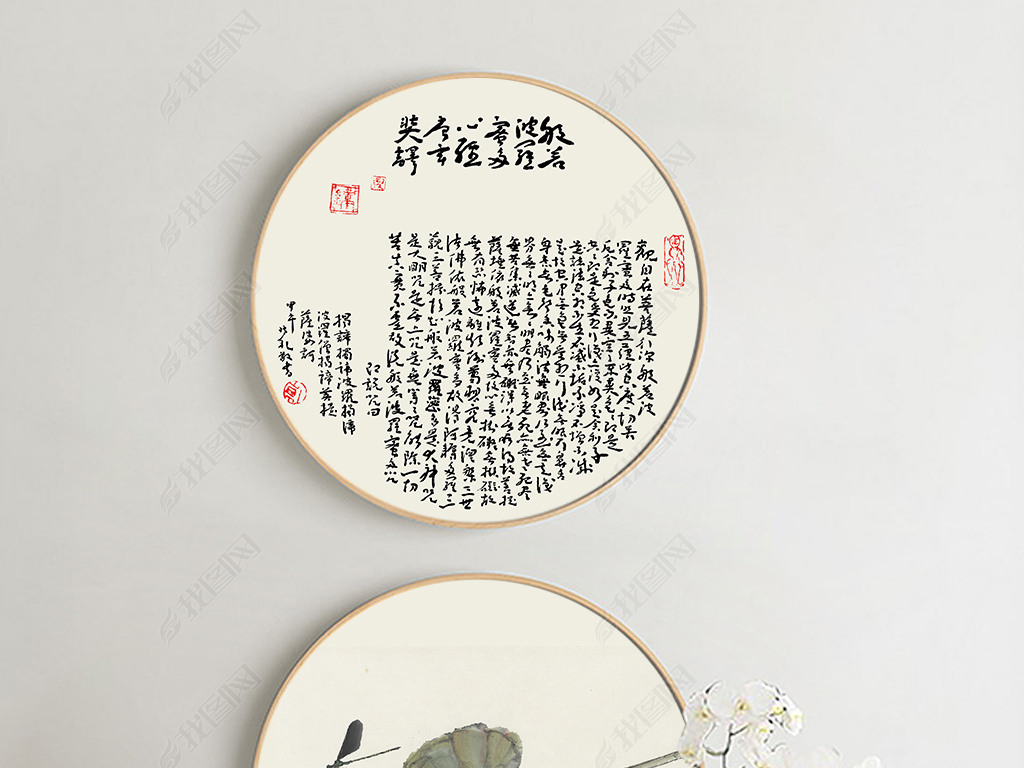 般若
波羅
蜜多
心經
唐玄
奘譯
觀自在菩薩行深般若波
羅蜜多時照見五蘊皆空度一切苦
厄舍利子色不異空空不異色色即是
空空即是色受想行識亦復如是舍利子
是諸法空相不生不滅不垢不淨不增不減
是故空中無色無受想行識無眼耳鼻舌
身意無色聲香味觸法無眼界乃至無意識
界無無明亦無無明盡乃至無老死亦無老死盡
無苦集滅道無智亦無得以無所得故菩提
薩埵依般若波羅蜜多故心無掛礙無掛礙故
無有恐怖遠離顛倒夢想究竟涅槃三世
諸佛依般若波羅蜜多故得阿耨多羅三
藐三菩提故知般若波羅蜜多是大神咒
是大明咒是無上咒是無等等咒能除一切
苦真實不虛故說般若波羅蜜多咒
即說咒曰
揭諦揭諦波羅揭諦
波羅僧揭諦菩提
薩婆訶
甲午
找图网